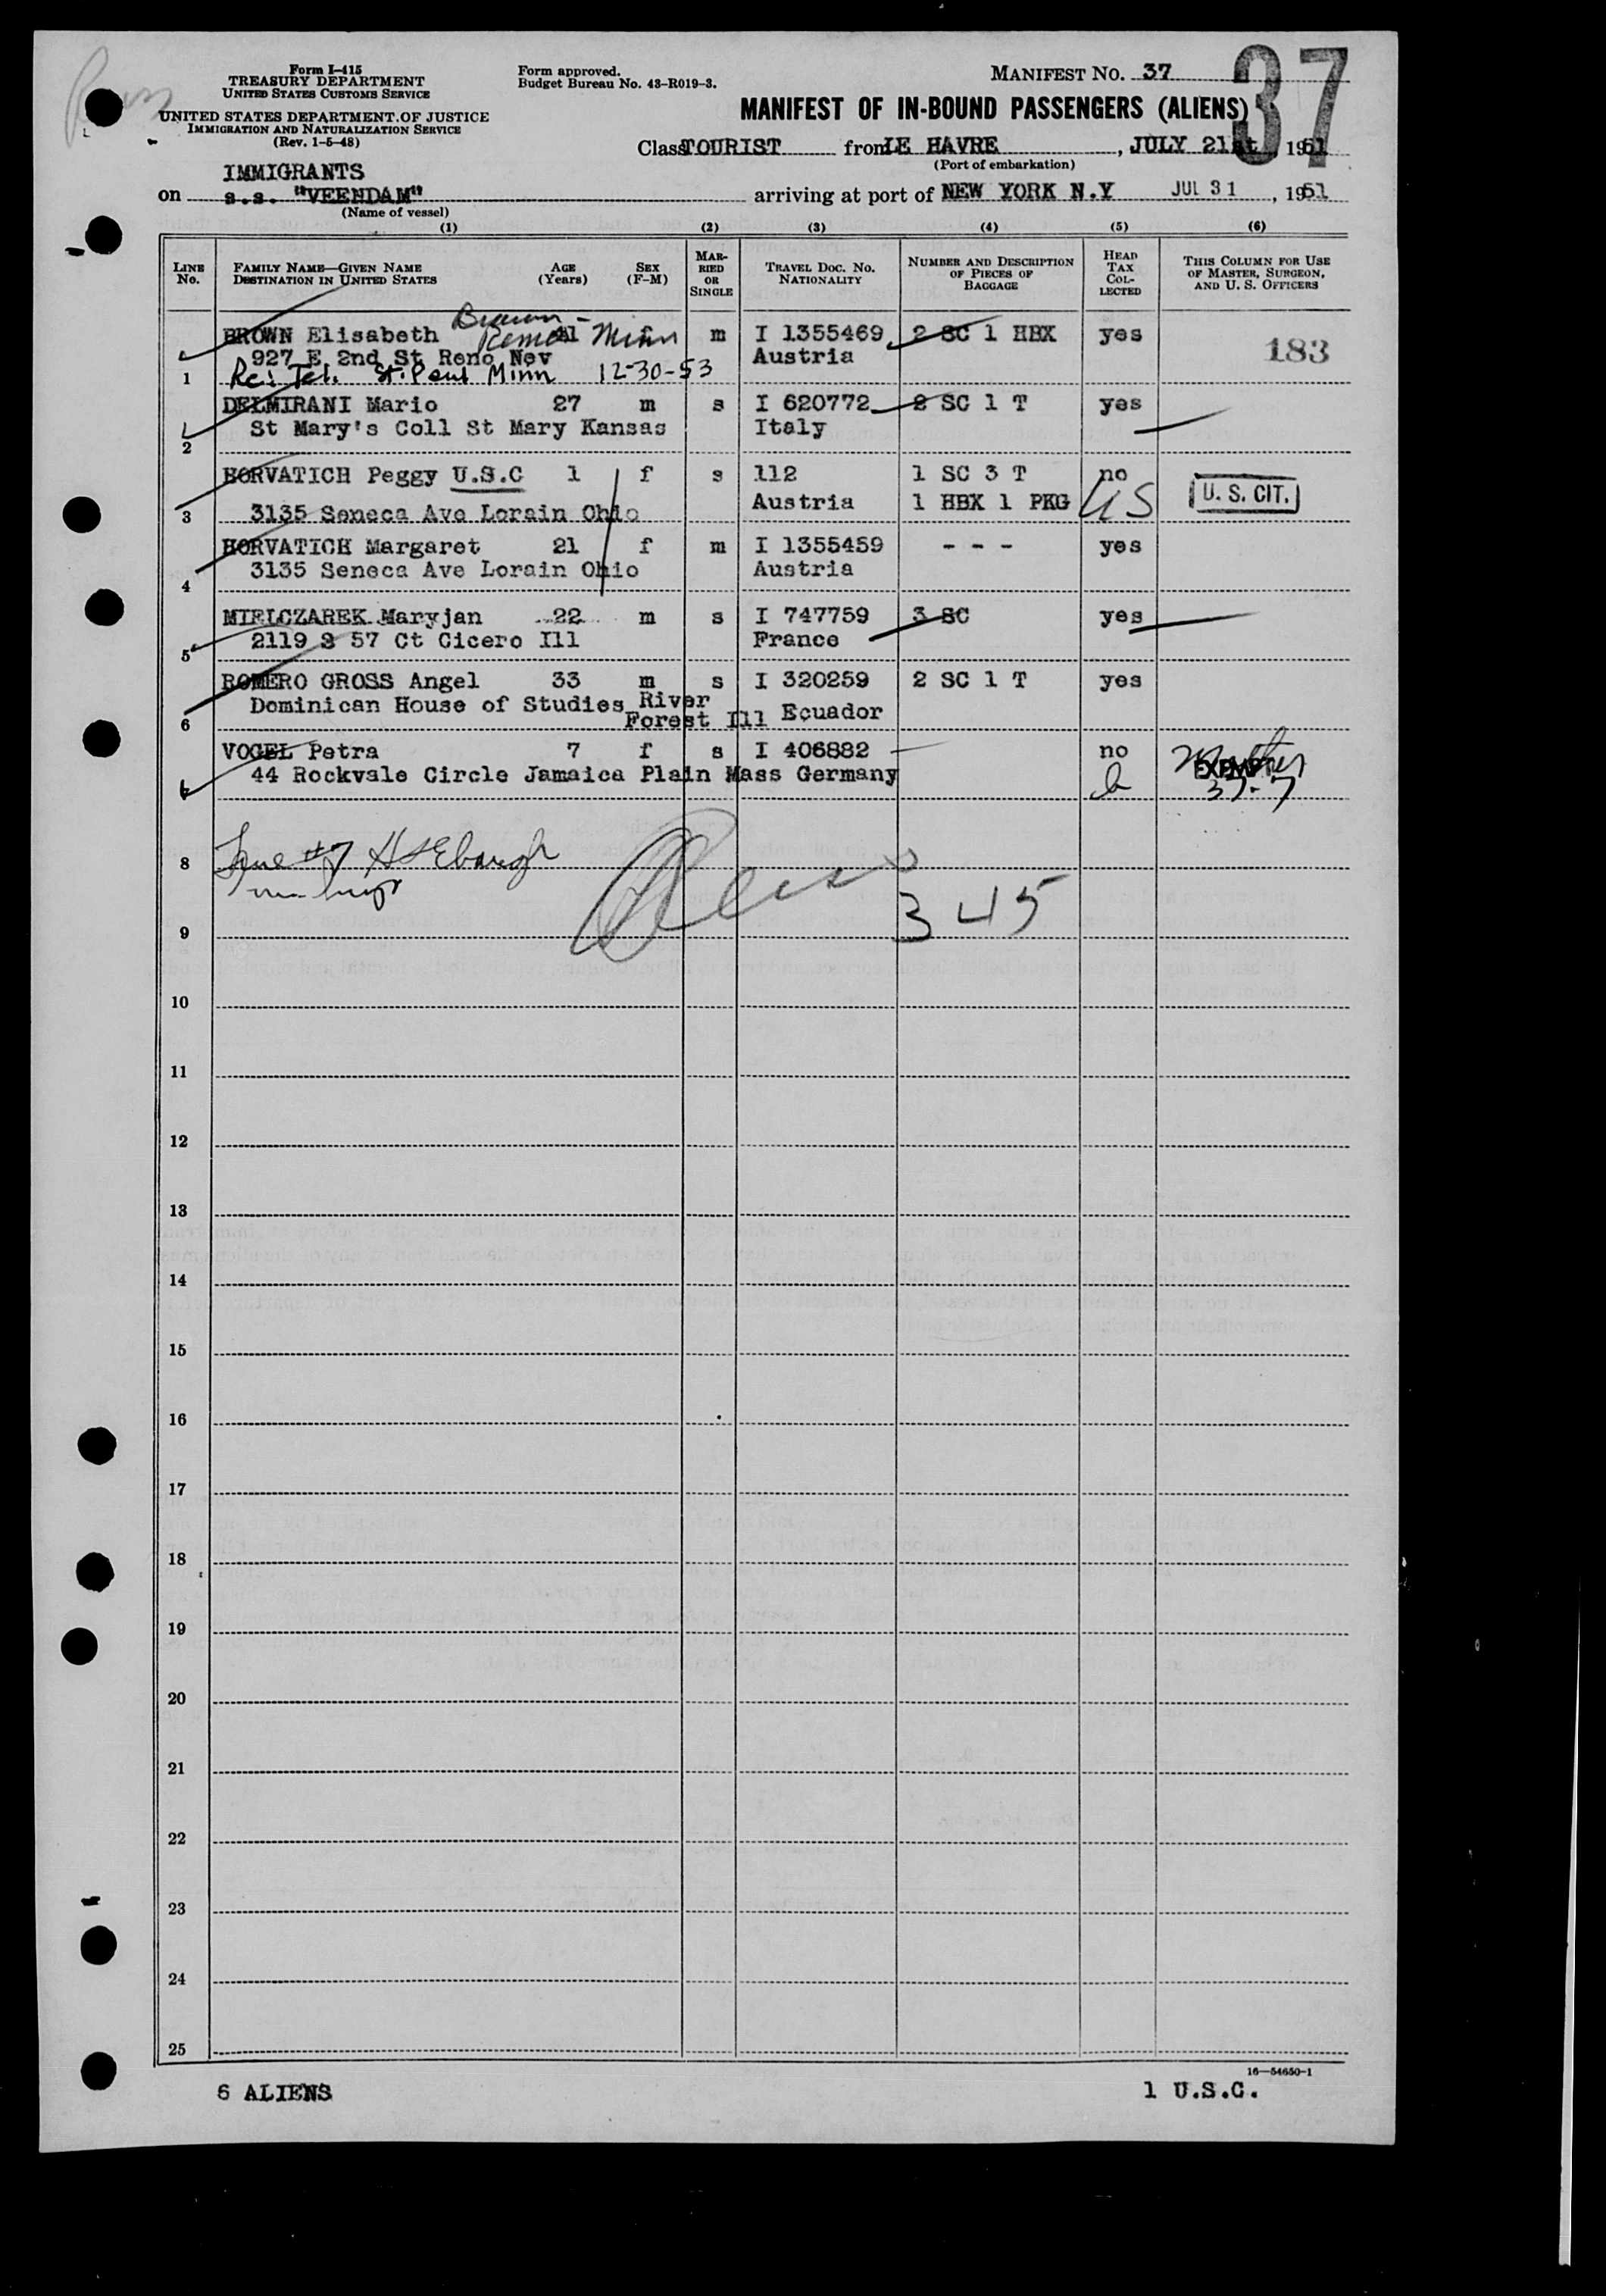 37
Form I-415
TREASURY DEPARTMENT
UNITED STATES CUSTOMS SERVICE
UNITED STATES DEPARTMENT OF JUSTICE
IMMIGRATION AND NATURALIZATION SERVICE
(Rev. 1-5-48)
Form approved.
Budget Bureau No. 43-R019-3.
MANIFEST NO. 37
MANIFEST OF IN-BOUND PASSENGERS (ALIENS)
Class TOURIST from LE HAVRE, JULY 21st, 1951
(Port of embarkation)
IMMIGRANTS
on s.s. "VEENDAM" arriving at port of NEW YORK N.Y JUL 31, 1951
(Name of vessel)
(1) (2) (3) (4) (5) (6)
LINE No. FAMILY NAME—GIVEN NAME DESTINATION IN UNITED STATES AGE (Years) SEX (F-M) MARRIED OR SINGLE TRAVEL DOC. NO. NATIONALITY NUMBER AND DESCRIPTION OF PIECES OF BAGGAGE HEAD TAX COLLECTED THIS COLUMN FOR USE OF MASTER, SURGEON, AND U. S. OFFICERS
BROWN Elisabeth 41 f m I 1355469 2 SC 1 HBX yes 183
Minn
927 E 2nd St Reno Nev Austria
1 Re: Tel. St. Paul Minn 12-30-53
DELMIRANI Mario 27 m s I 620772 2 SC 1 T yes
2 St Mary's Coll St Mary Kansas Italy
HORVATICH Peggy U.S.C 1 f s 112 1 SC 3 T no U. S. CIT.
Austria 1 HBX 1 PKG US
3 3135 Seneca Ave Lorain Ohio
HORVATICH Margaret 21 f m I 1355459 - - - yes
4 3135 Seneca Ave Lorain Ohio Austria
MIELCZAREK Maryjan 22 m s I 747759 3 SC yes
5 2119 S 57 Ct Cicero Ill France
ROMERO GROSS Angel 33 m s I 320259 2 SC 1 T yes
6 Dominican House of Studies River Forest Ill Ecuador
VOGEL Petra 7 f s I 406882 no
44 Rockvale Circle Jamaica Plain Mass Germany
EXEMPT
37-7
8
345
9
10
11
12
13
14
15
16
17
18
19
20
21
22
23
24
25
16—54650-1
6 ALIENS 1 U.S.C.